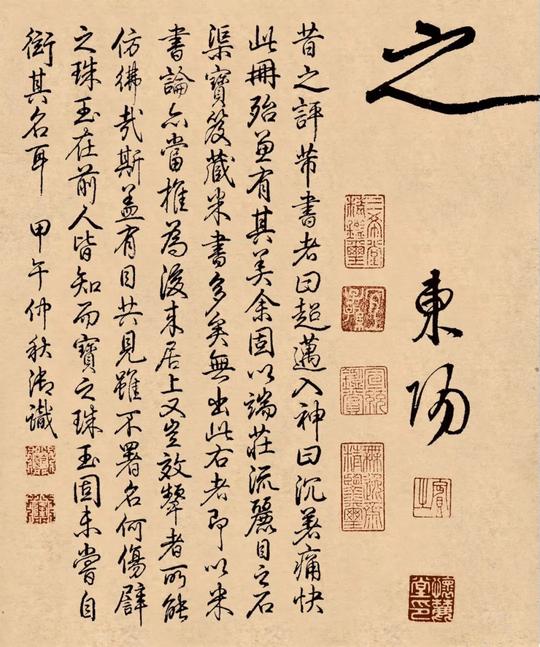 之
東陽
昔之評芾書者曰超邁入神曰沉著痛快
此冊殆兼有其美余固以端莊流麗目之石
渠寶笈藏米書多矣無出此右者即以米
書論亦當推為後來居上又豈效顰者所能
仿彿哉斯蓋有目共見雖不署名何傷譬
之珠玉在前人皆知而寶之珠玉固未嘗自
衒其名耳 甲午仲秋御識